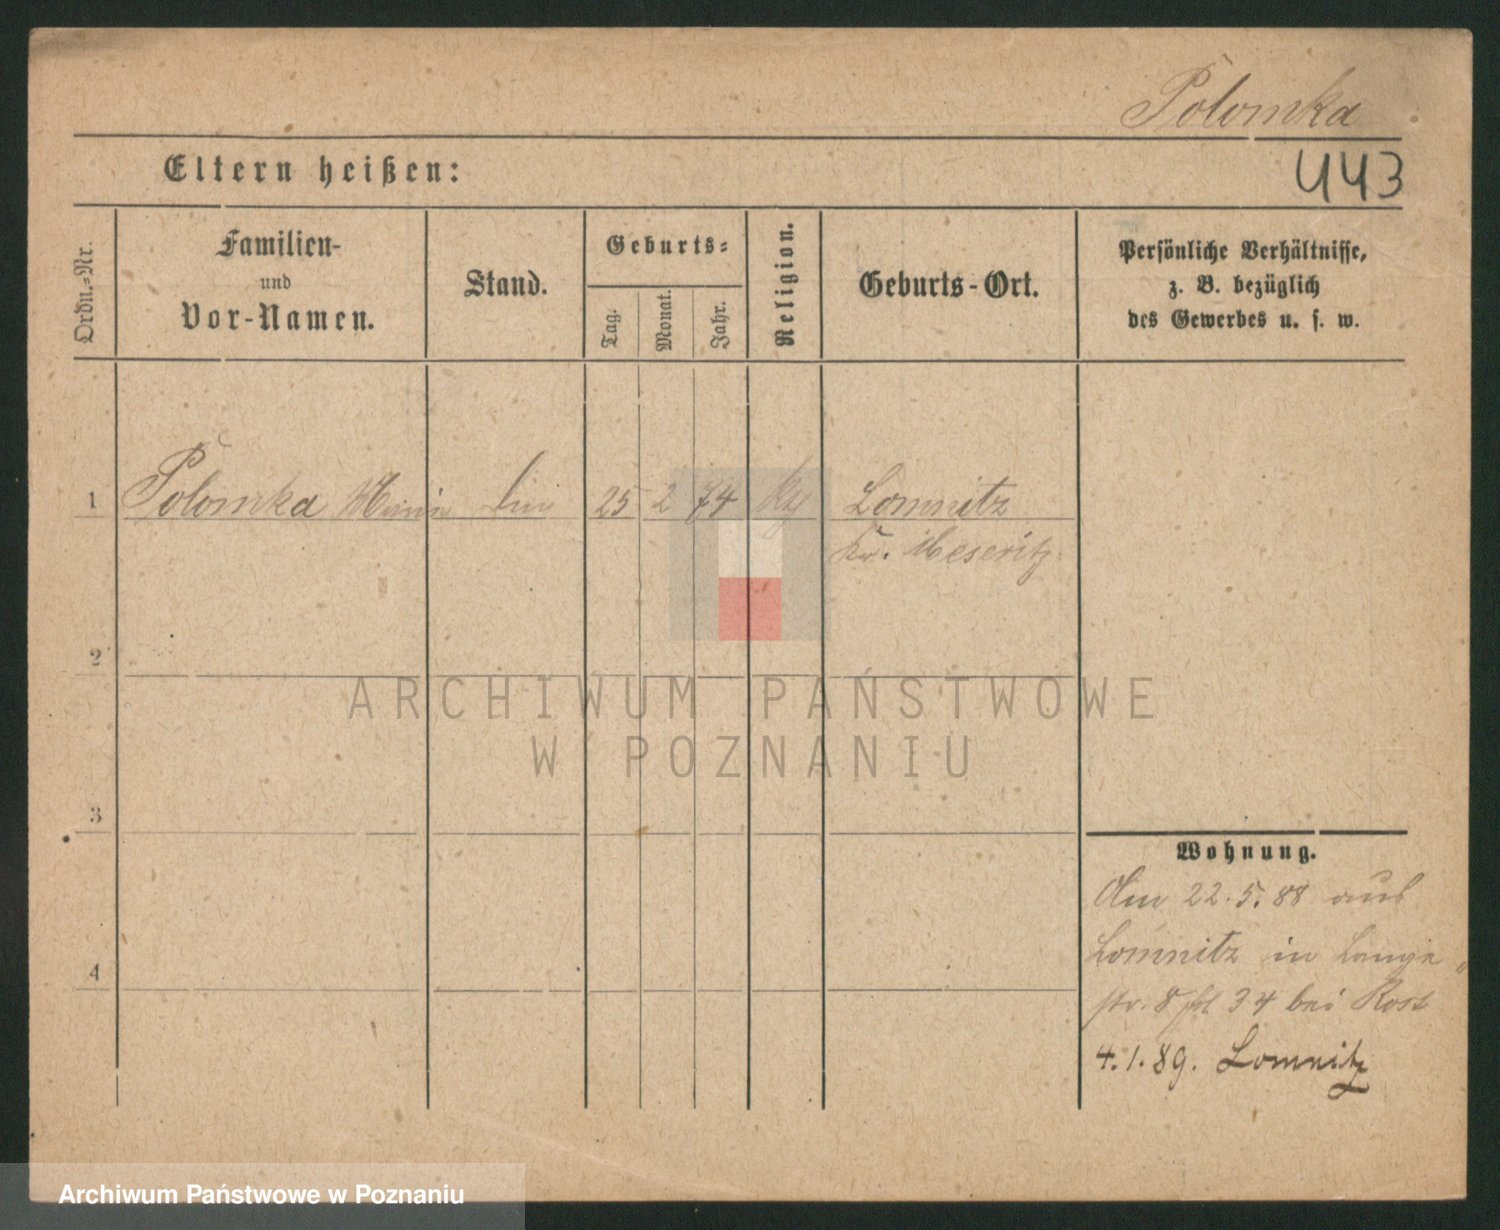 Polomka
443
Eltern heißen:
Ordn.-Nr.
Familien-
und
Vor-Namen.
Stand.
Geburts-
Tag.
Monat.
Jahr.
Religion.
Geburts-Ort.
Persönliche Verhältnisse,
z. B. bezüglich
des Gewerbes u. s. w.
1 Polomka 25 2 74 Lomnitz
Kr. Meseritz
2
3
4
Wohnung.
Am 22.5.88 aus
Lomnitz in Lange
str. 8 34 bei Rost
4.1.89. Lomnitz
ARCHIWUM PAŃSTWOWE
W POZNANIU
Archiwum Państwowe w Poznaniu